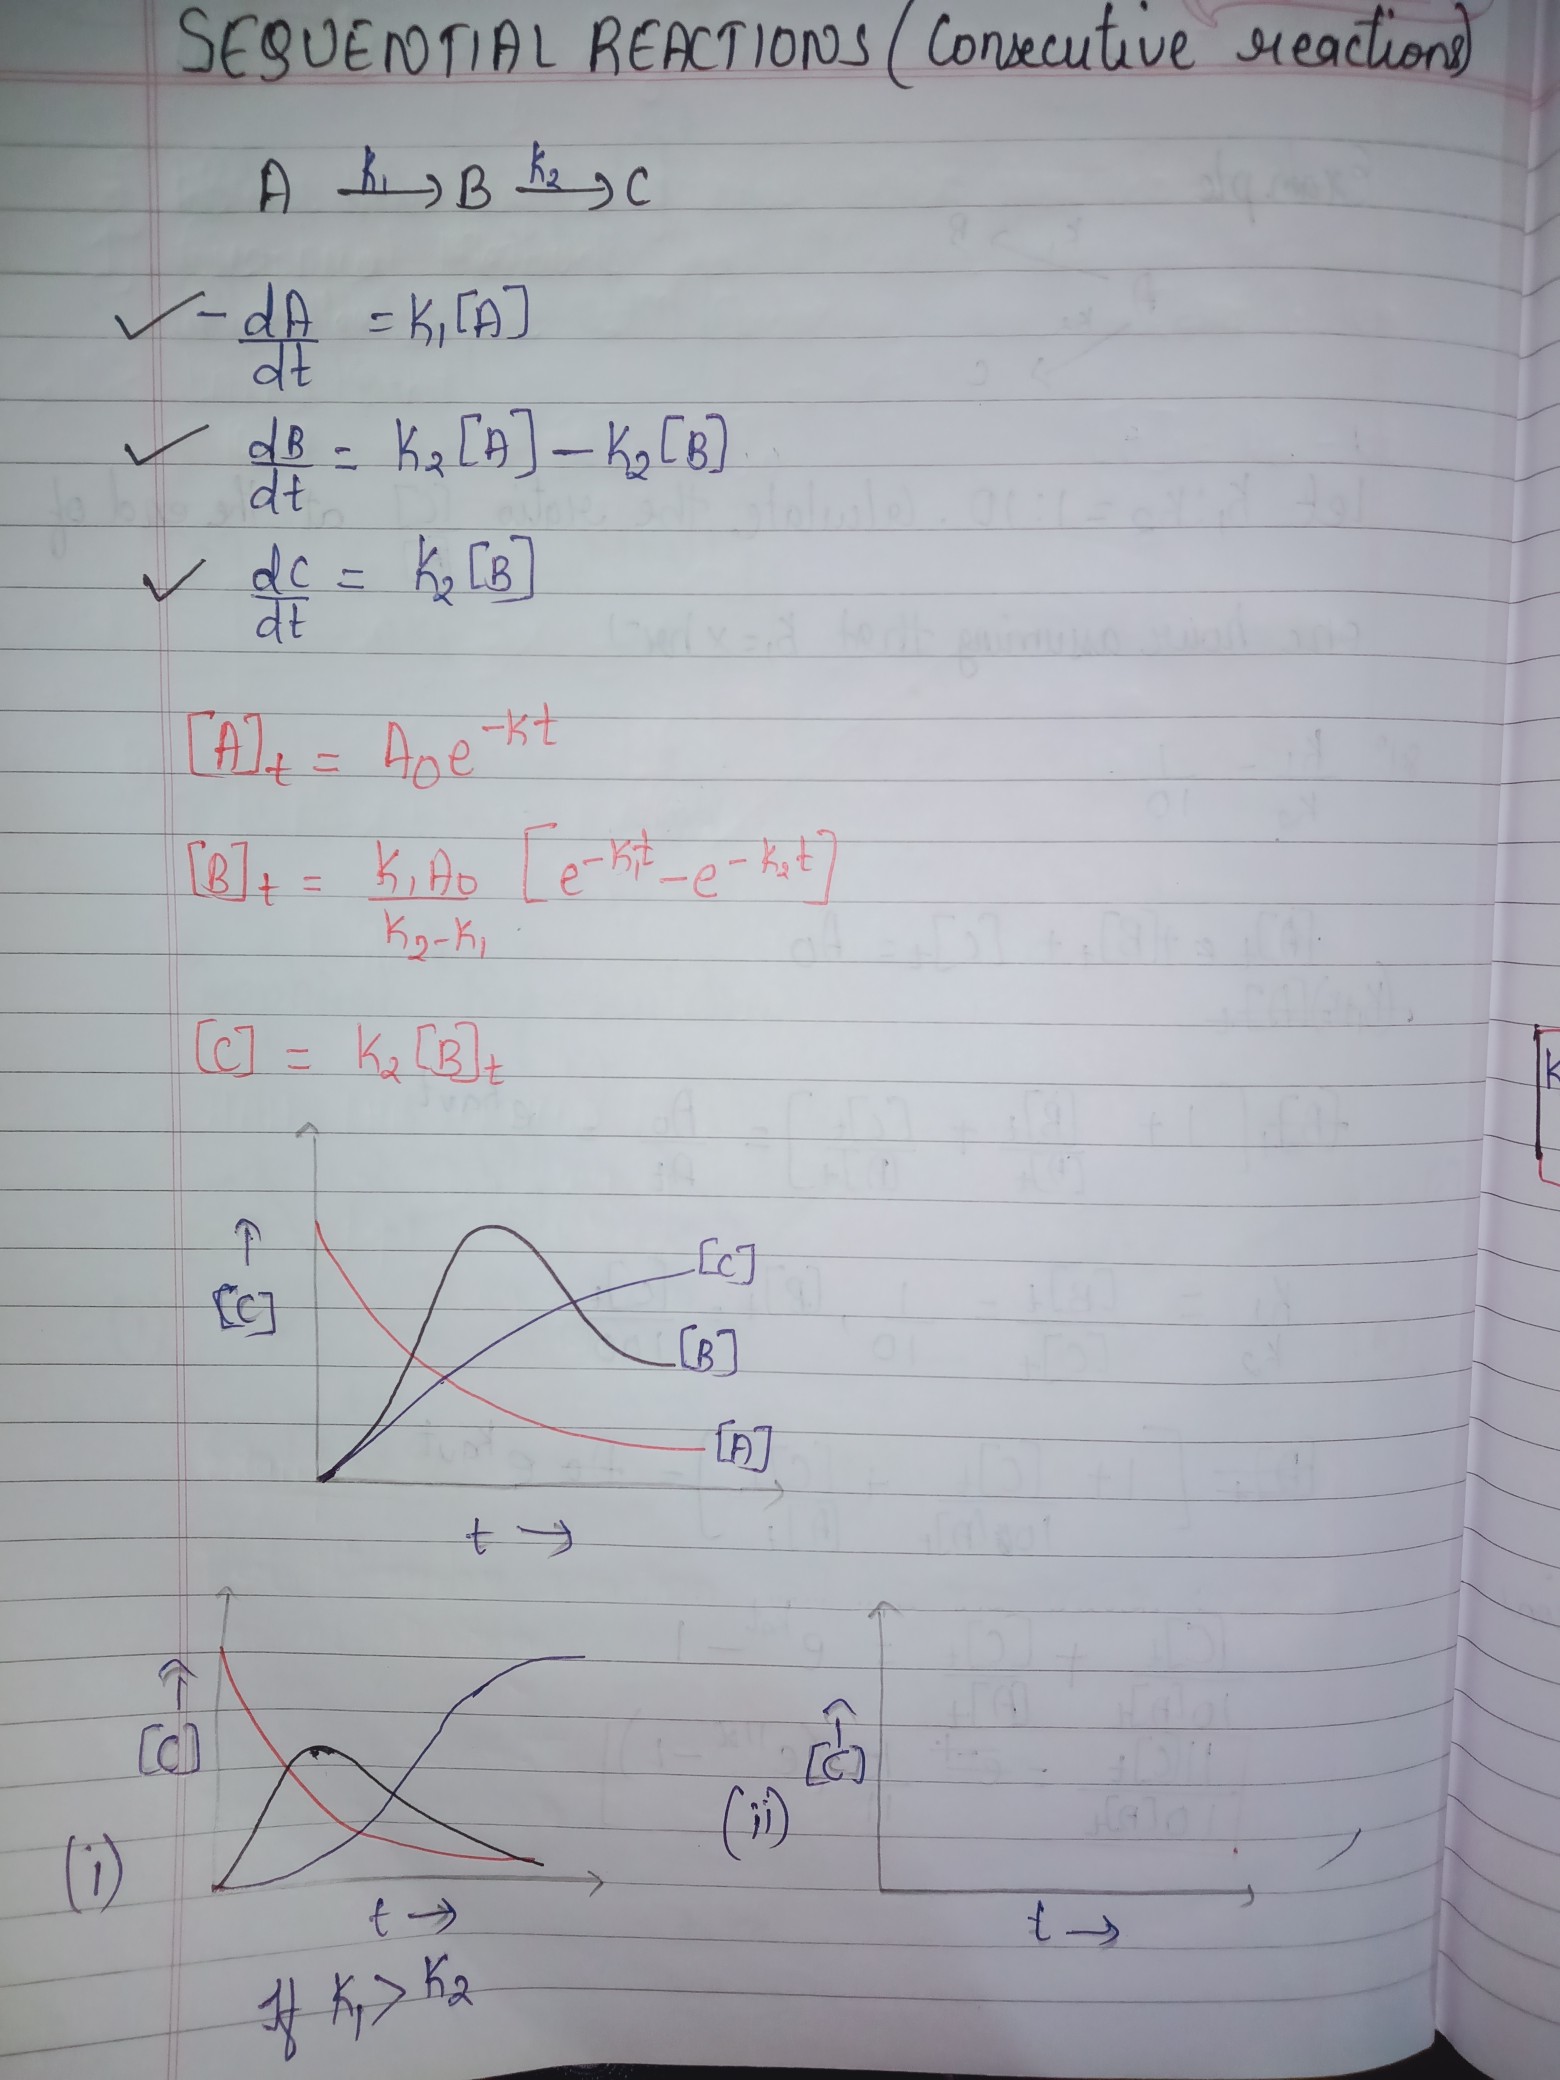 SEQUENTIAL REACTIONS (Consecutive reactions)
A K₁→ B K₂→ C
✓ - dA/dt = K₁[A]
✓ dB/dt = K₂[A] - K₂[B]
✓ dC/dt = K₂[B]
[A]t = A₀e^-Kt
[B]t = K₁A₀/K₂-K₁ [e^-K₁t - e^-K₂t]
[C] = K₂[B]t
↑
[C]
[C]
[B]
[A]
t →
↑
[C]
(i)
t →
If K₁ > K₂
↑
[C]
(ii)
t →
K